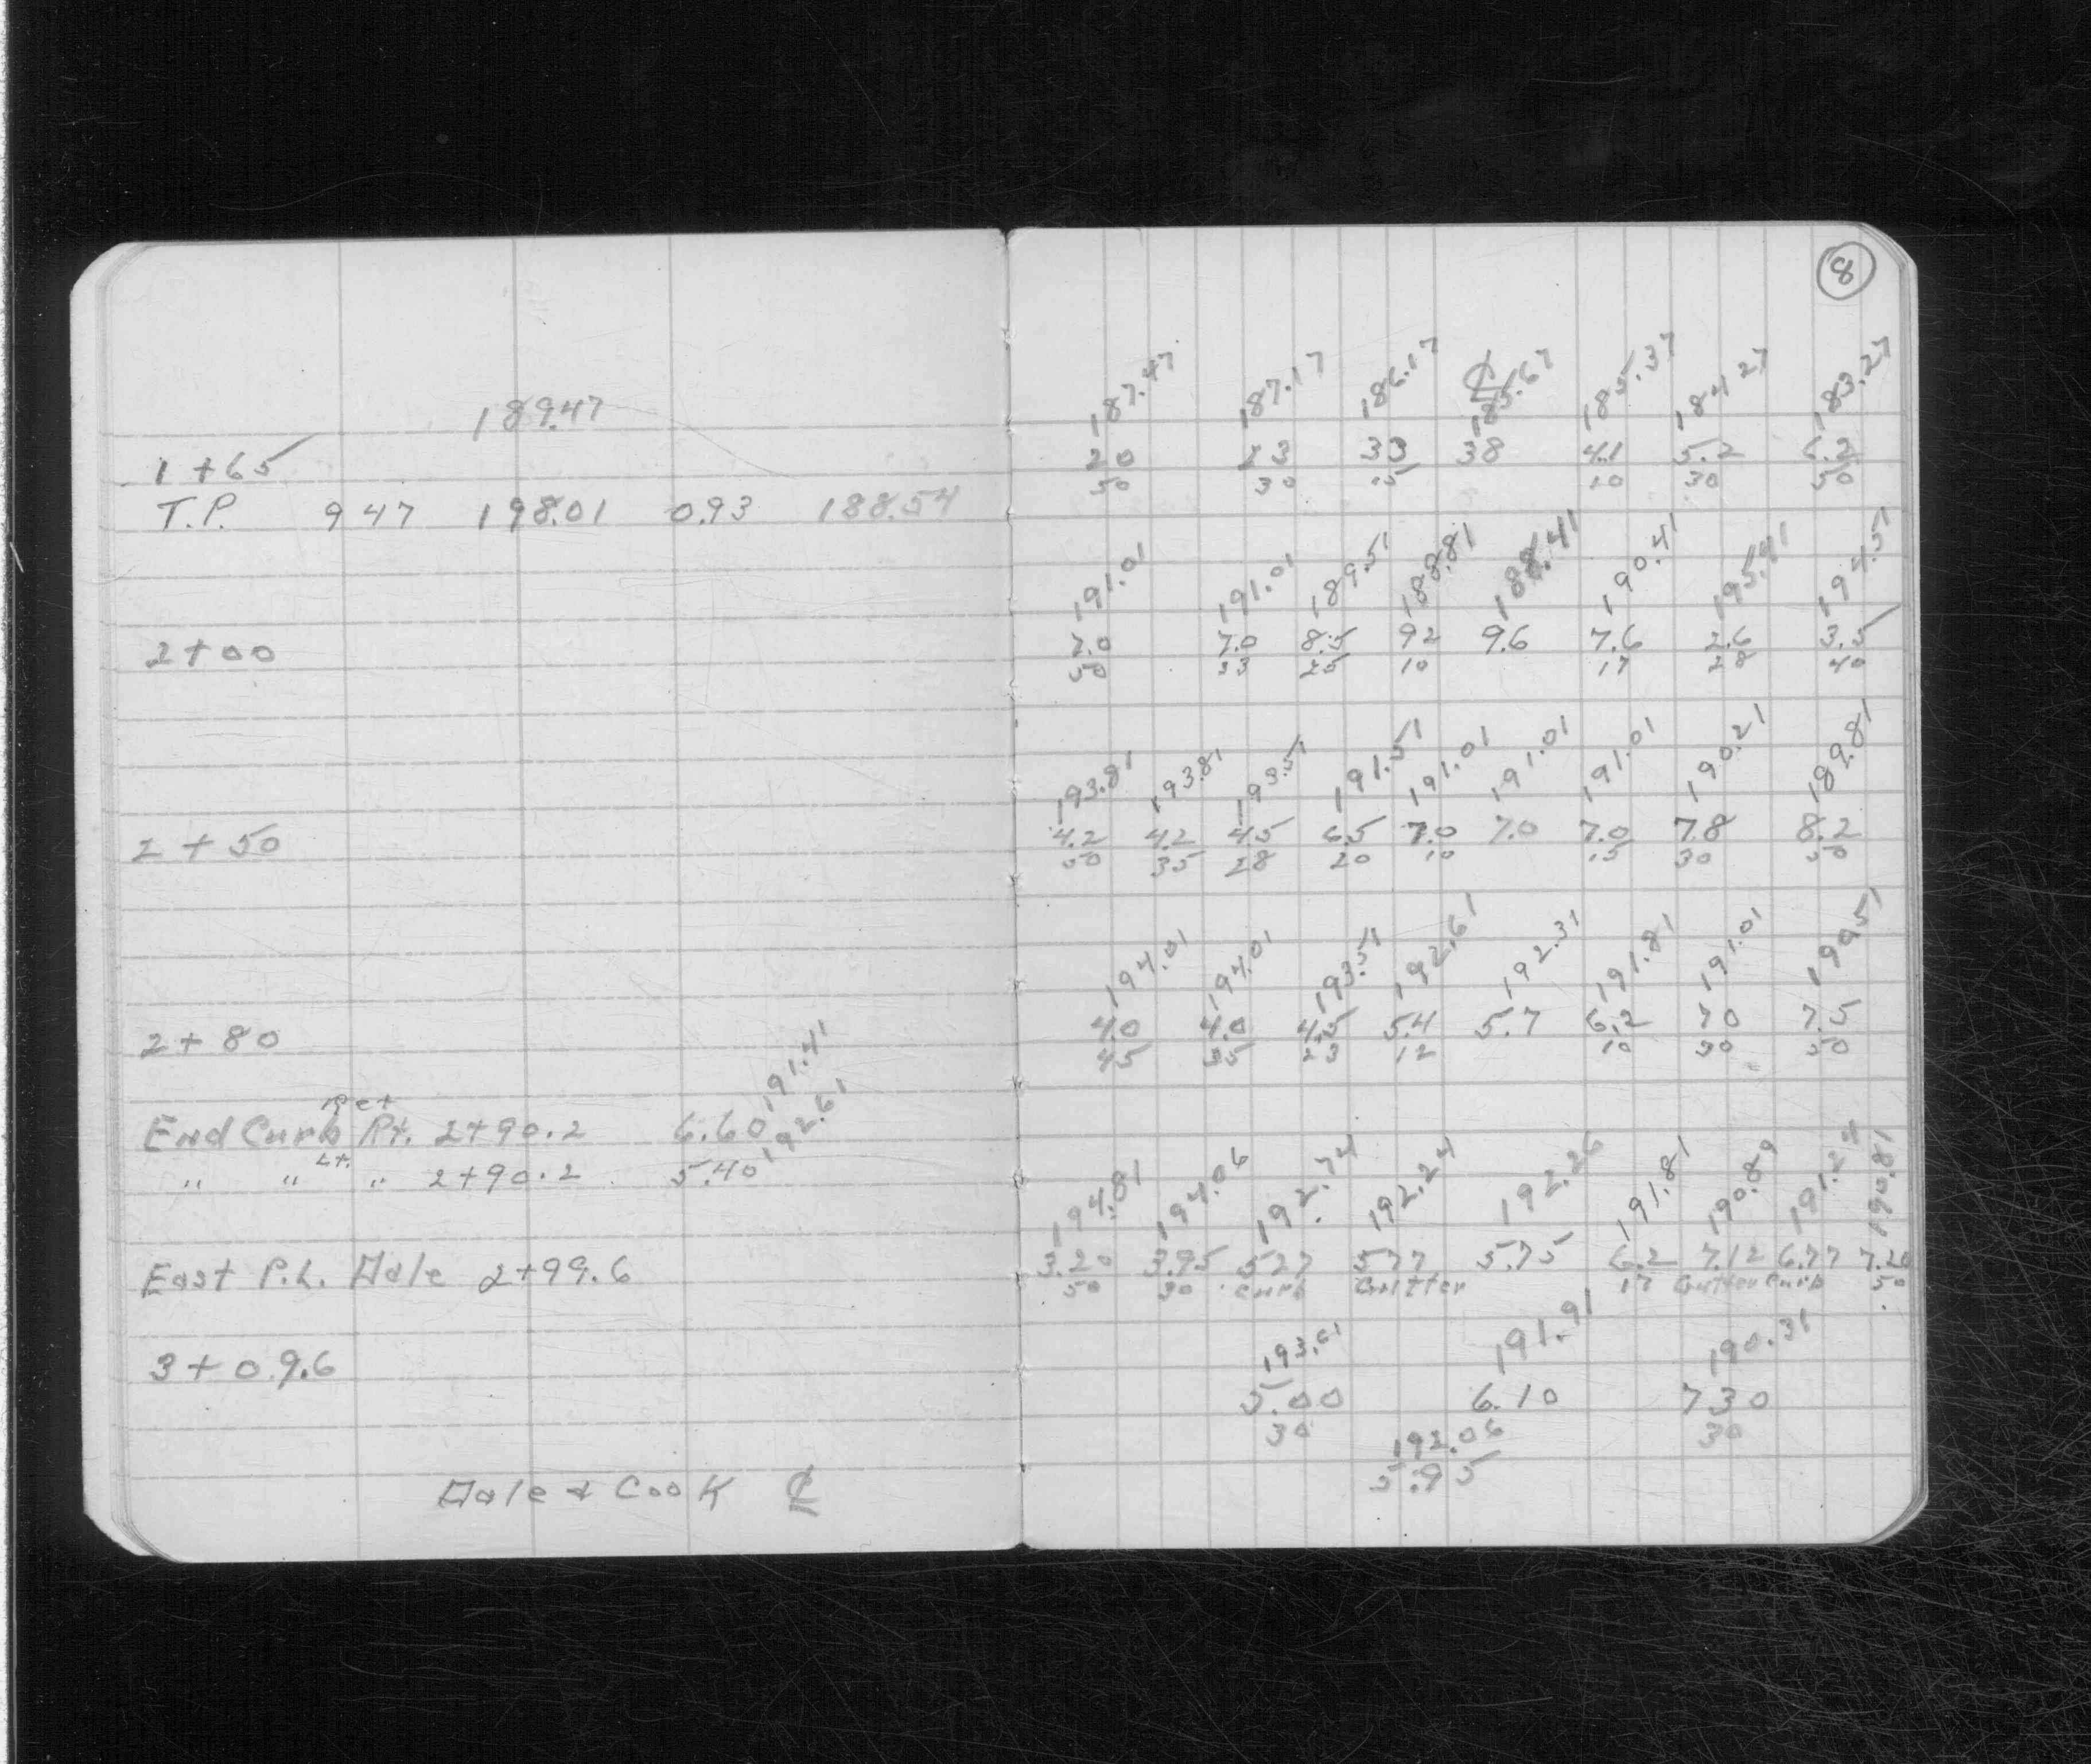 8
189.47
187.47 187.17 186.17 ₵ 185.67 185.37 184.27 183.27
1+65 20 23 33 38 4.1 5.2 6.2
50 30 15 10 30 50
T.P. 947 198.01 0.93 188.54
191.01 191.01 189.51 188.81 188.41 190.41 195.41 194.51
2+00 7.0 7.0 8.5 92 9.6 7.6 2.6 3.5
50 33 25 10 17 28 40
193.81 193.81 193.51 191.51 191.01 191.01 191.01 190.21 189.81
2+50 4.2 4.2 45 6.5 7.0 7.0 7.0 7.8 8.2
50 35 28 20 10 15 30 50
194.01 194.01 193.51 192.61 192.31 191.81 191.01 190.51
2+80 4.0 4.0 4.5 5.4 5.7 6.2 70 7.5
45 35 23 12 10 30 50
End Curb Ret Rt. 2+90.2 6.60 191.41
" " Lt. " 2+90.2 5.40 192.61
194.81 194.06 192.74 192.24 192.26 191.81 190.89 191.24 190.81
East P.L. Dale 2+99.6 3.20 3.95 527 577 5.75 6.2 7.12 6.77 7.20
50 30 Curb Gutter 17 Gutter Curb 50
193.01 191.91 190.31
3+09.6 5.00 6.10 730
30 30
192.06
Dale & Cook ₵ 5.95